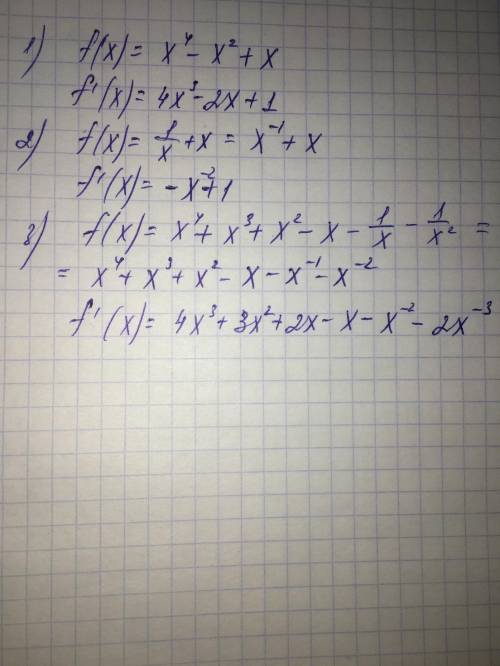 1) f(x) = x⁴ - x² + x
f'(x) = 4x³ - 2x + 1
2) f(x) = 1/x + x = x⁻¹ + x
f'(x) = -x⁻² + 1
3) f(x) = x⁴ + x³ + x² - x - 1/x - 1/x² =
= x⁴ + x³ + x² - x - x⁻¹ - x⁻²
f'(x) = 4x³ + 3x² + 2x - x - x⁻² - 2x⁻³